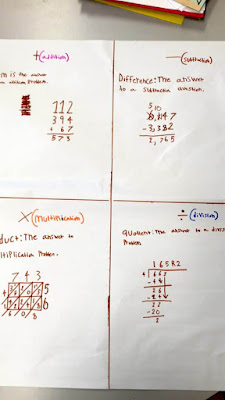 +(addition)
m is the answer
an addition Problem.
112
394
+ 67
573
-(subtraction)
Difference: The answer
to a subtraction question.
5 10
6,147
-3,382
2,765
×(Multiplication)
duct: The answer to
multiplication Problem.
7 4 3
5
6
÷(division)
Quotient: The answer to a divis
Problem
165R2
4 662
-4
26
-24
22
-20
2